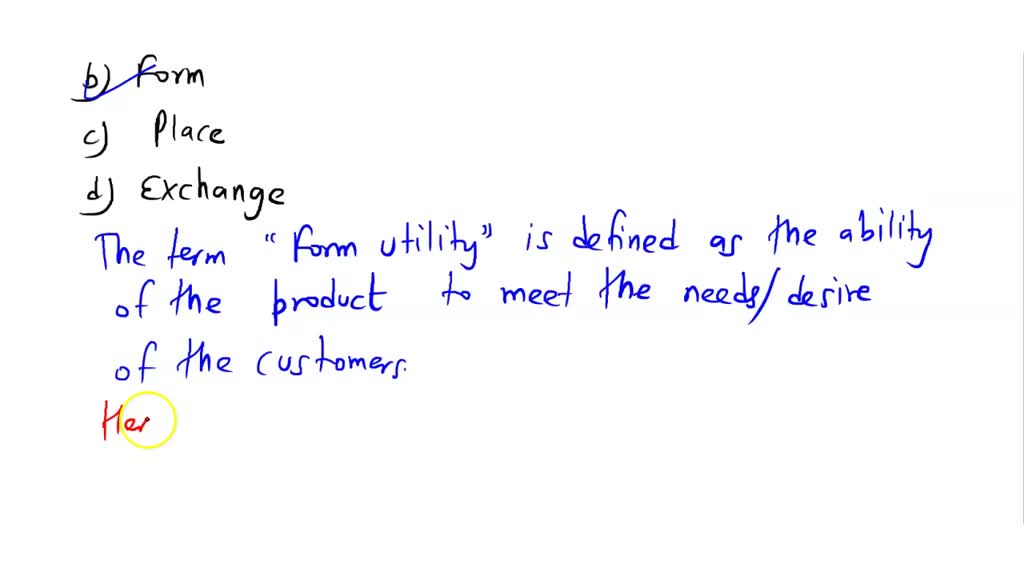 b) Form
c) Place
d) Exchange
The term "Form utility" is defined as the ability
of the product to meet the needs/desire
of the customers.
Her